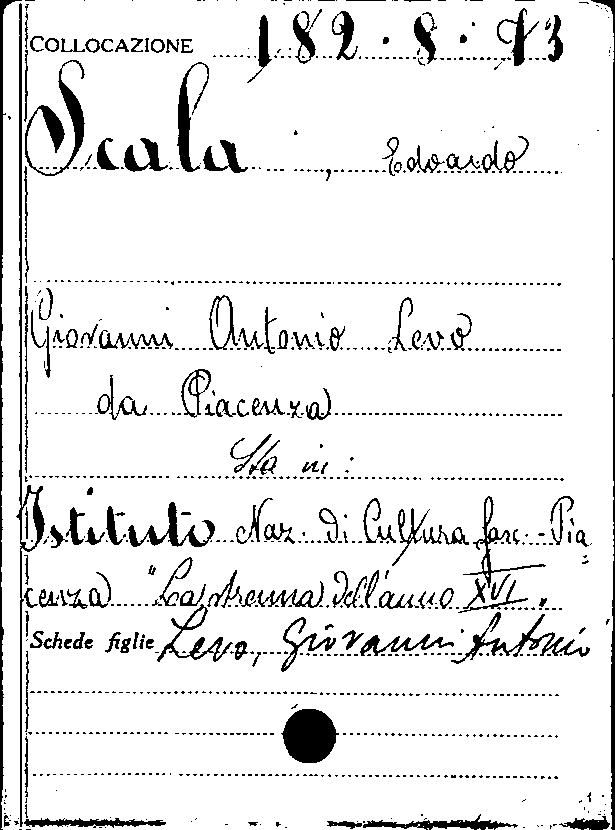 COLLOCAZIONE 182.8.73
Scala, Edoardo
Giovanni Antonio Levo
da Piacenza
Sta in:
Istituto Naz. di Cultura fasc.-Pia=
cenza "La strenna dell'anno XVI.
Schede figlie Levo, Giovanni Antonio